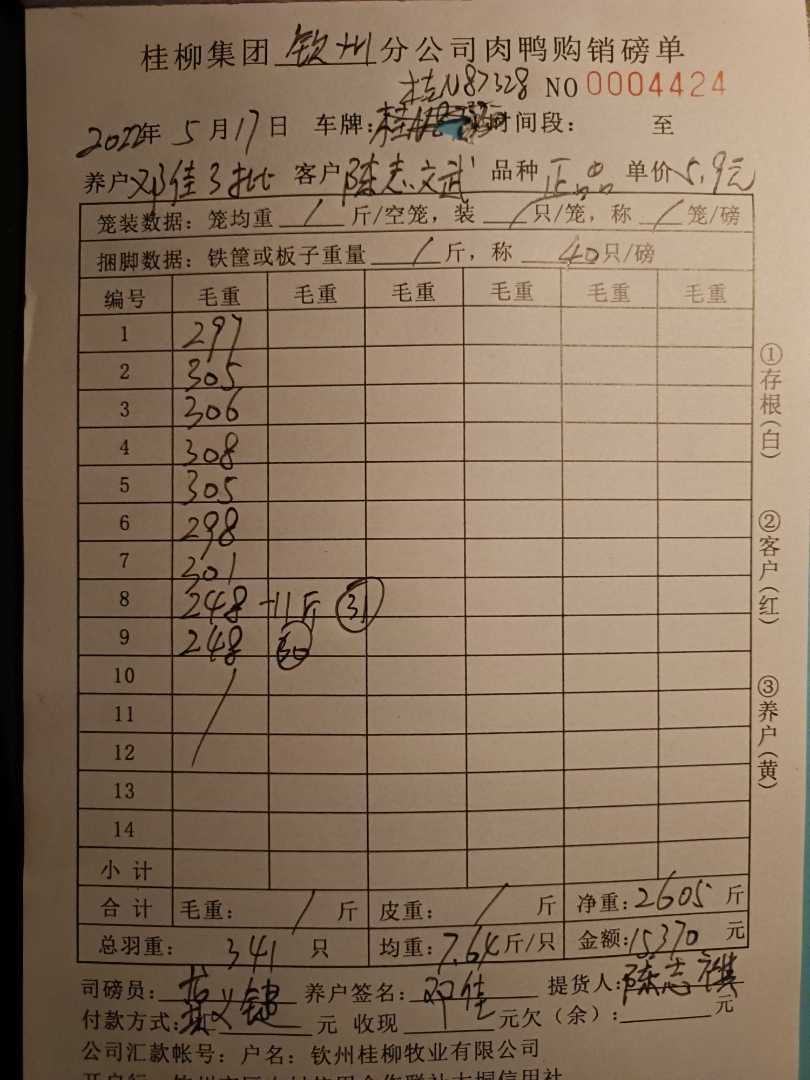 桂柳集团 钦州 分公司肉鸭购销磅单
桂N87328 NO 0004424
2022年 5 月 17 日 车牌: 时间段: 至
养户 邓佳3批 客户 陈志文武 品种 正品 单价 5.9元
笼装数据: 笼均重 / 斤/空笼, 装 / 只/笼, 称 / 笼/磅
捆脚数据: 铁筐或板子重量 / 斤, 称 40 只/磅
编号 毛重 毛重 毛重 毛重 毛重 毛重
1 297
2 305
3 306
4 308
5 305
6 298
7 301
8 248 -11斤 31
9 248 30
10
11
12
13
14
小计
合计 毛重: / 斤 皮重: / 斤 净重: 2605 斤
总羽重: 341 只 均重: 7.64 斤/只 金额: 15370 元
司磅员: 养户签名: 邓佳 提货人: 陈志祺
付款方式: 元 收现 元欠(余): 元
公司汇款帐号: 户名: 钦州桂柳牧业有限公司
①存根(白) ②客户(红) ③养户(黄)